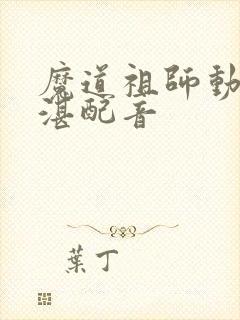 魔道祖師動
湛配音
葉丁